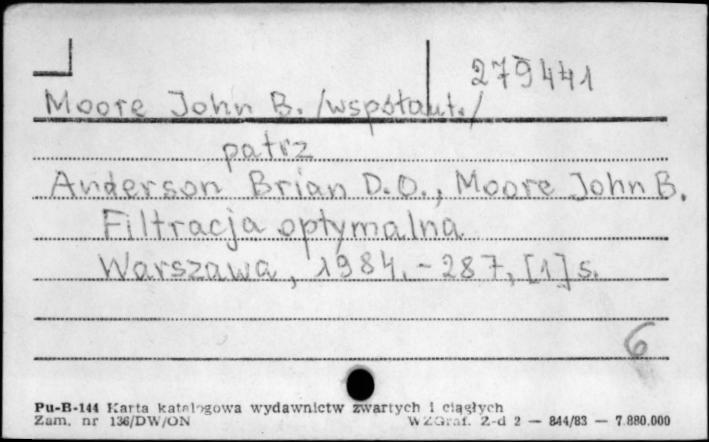 279441
Moore John B. /współaut./
patrz
Anderson Brian D.O., Moore John B.
Filtracja optymalna
Warszawa, 1984. - 287, [1] s.
6
Pu-B-144 Karta katalogowa wydawnictw zwartych i ciągłych
Zam. nr 136/DW/ON WZGraf. Z-d 2 — 844/83 — 7.880.000